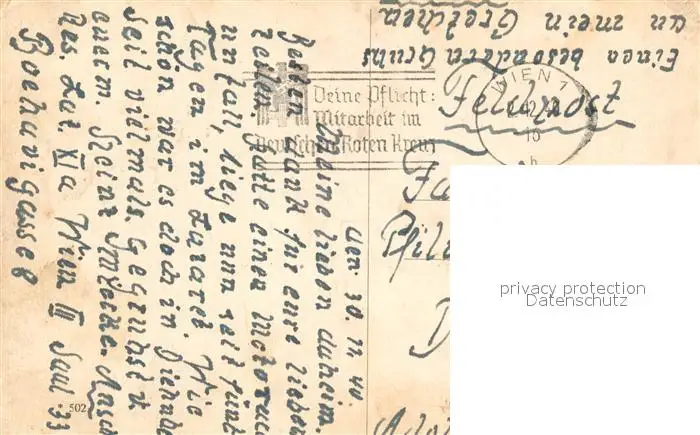 Einen besonderen Gruß
an mein Gretchen
WIEN 1
Deine Pflicht:
Mitarbeit im
Deutschen Roten Kreuz
Feldpost
den 30. 11. 40.
Meine lieben daheim.
Besten Dank für eure lieben
Zeilen. Hatte einen Motorrad
unfall, liege nun seit fünf
Tagen im Lazarett. Wie
schön war es doch in
Seid vielmals gegrüßt v.
euerm Heinz
Res. Laz. XIa Wien III Saal 33
Boerhavegasse 8
* 502
privacy protection
Datenschutz